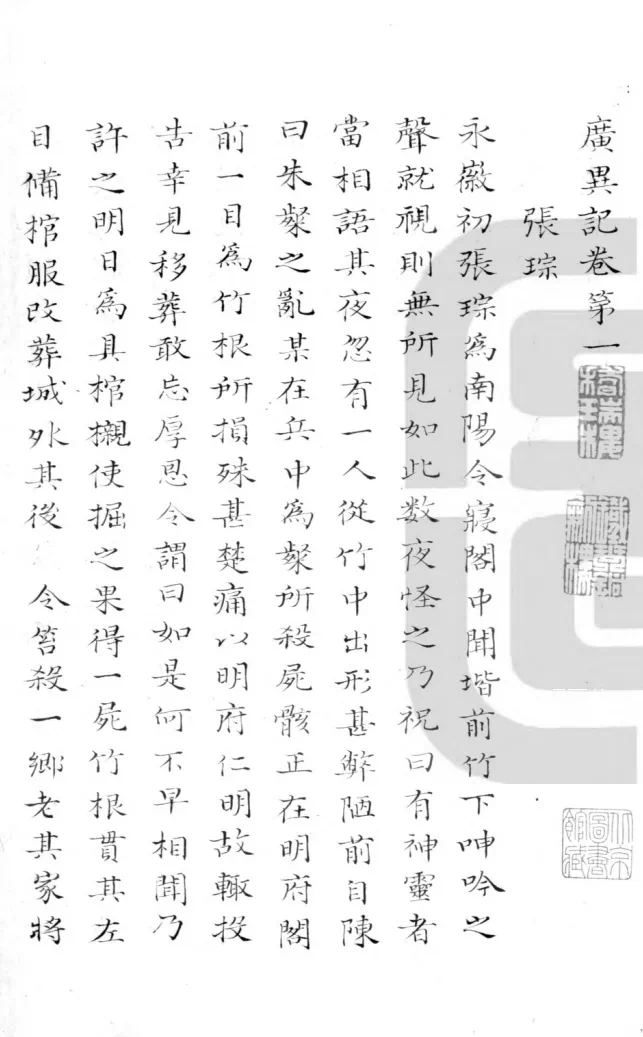 廣異記卷第一
張琮
永徽初張琮爲南陽令寢閣中聞堦前竹下呻吟之
聲就視則無所見如此數夜怪之乃祝曰有神靈者
當相語其夜忽有一人從竹中出形甚弊陋前自陳
曰朱粲之亂某在兵中爲粲所殺屍骸正在明府閣
前一目爲竹根所損殊甚楚痛以明府仁明故輙投
告幸見移葬敢忘厚恩令謂曰如是何不早相聞乃
許之明日爲具棺櫬使掘之果得一屍竹根貫其左
目備棺服改葬城外其後令笞殺一鄉老其家將
北京圖書館藏